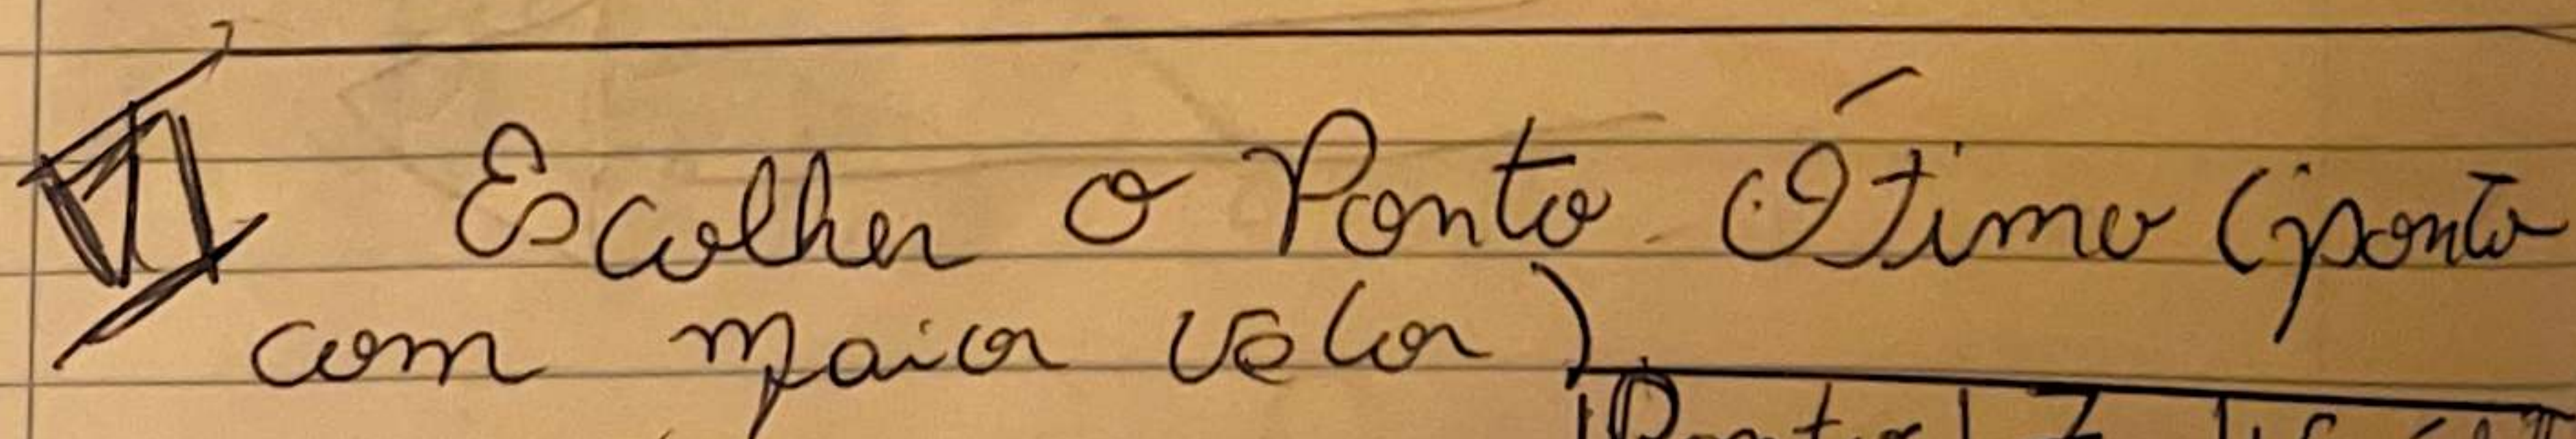 Escolher o Ponto Ótimo (ponto
com maior valor)